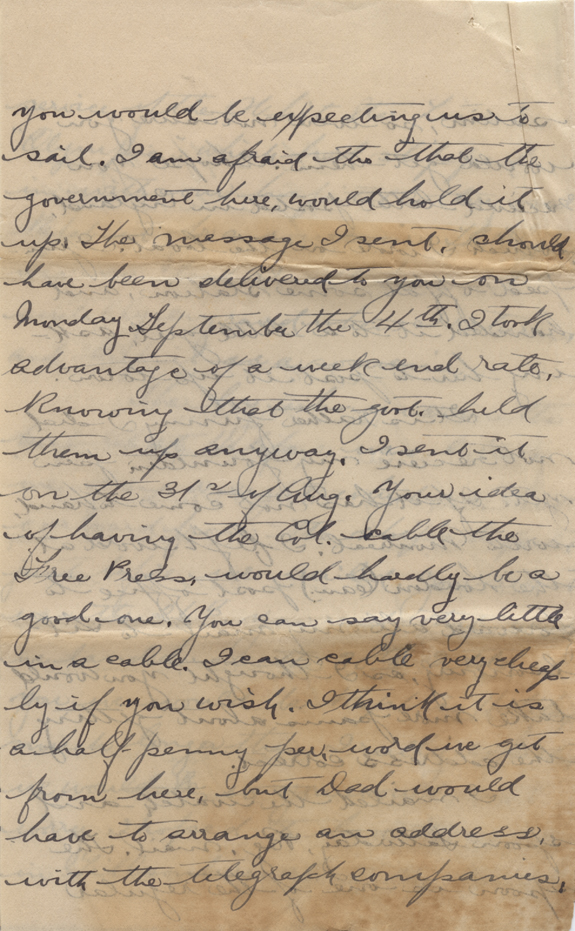 you would be expecting us to
sail. I am afraid tho that the
government here, would hold it
up. The message I sent, should
have been delivered to you on
Monday September the 4th. I took
advantage of a week end rate,
knowing that the govt. held
them up anyway. I sent it
on the 31st of Aug. Your idea
of having the Col. cable the
Free Press, would hardly be a
good one. You can say very little
in a cable. I can cable very cheap-
ly if you wish. I think it is
a half penny per, word we get
from here, but Dad would
have to arrange an address,
with the telegraph companies,